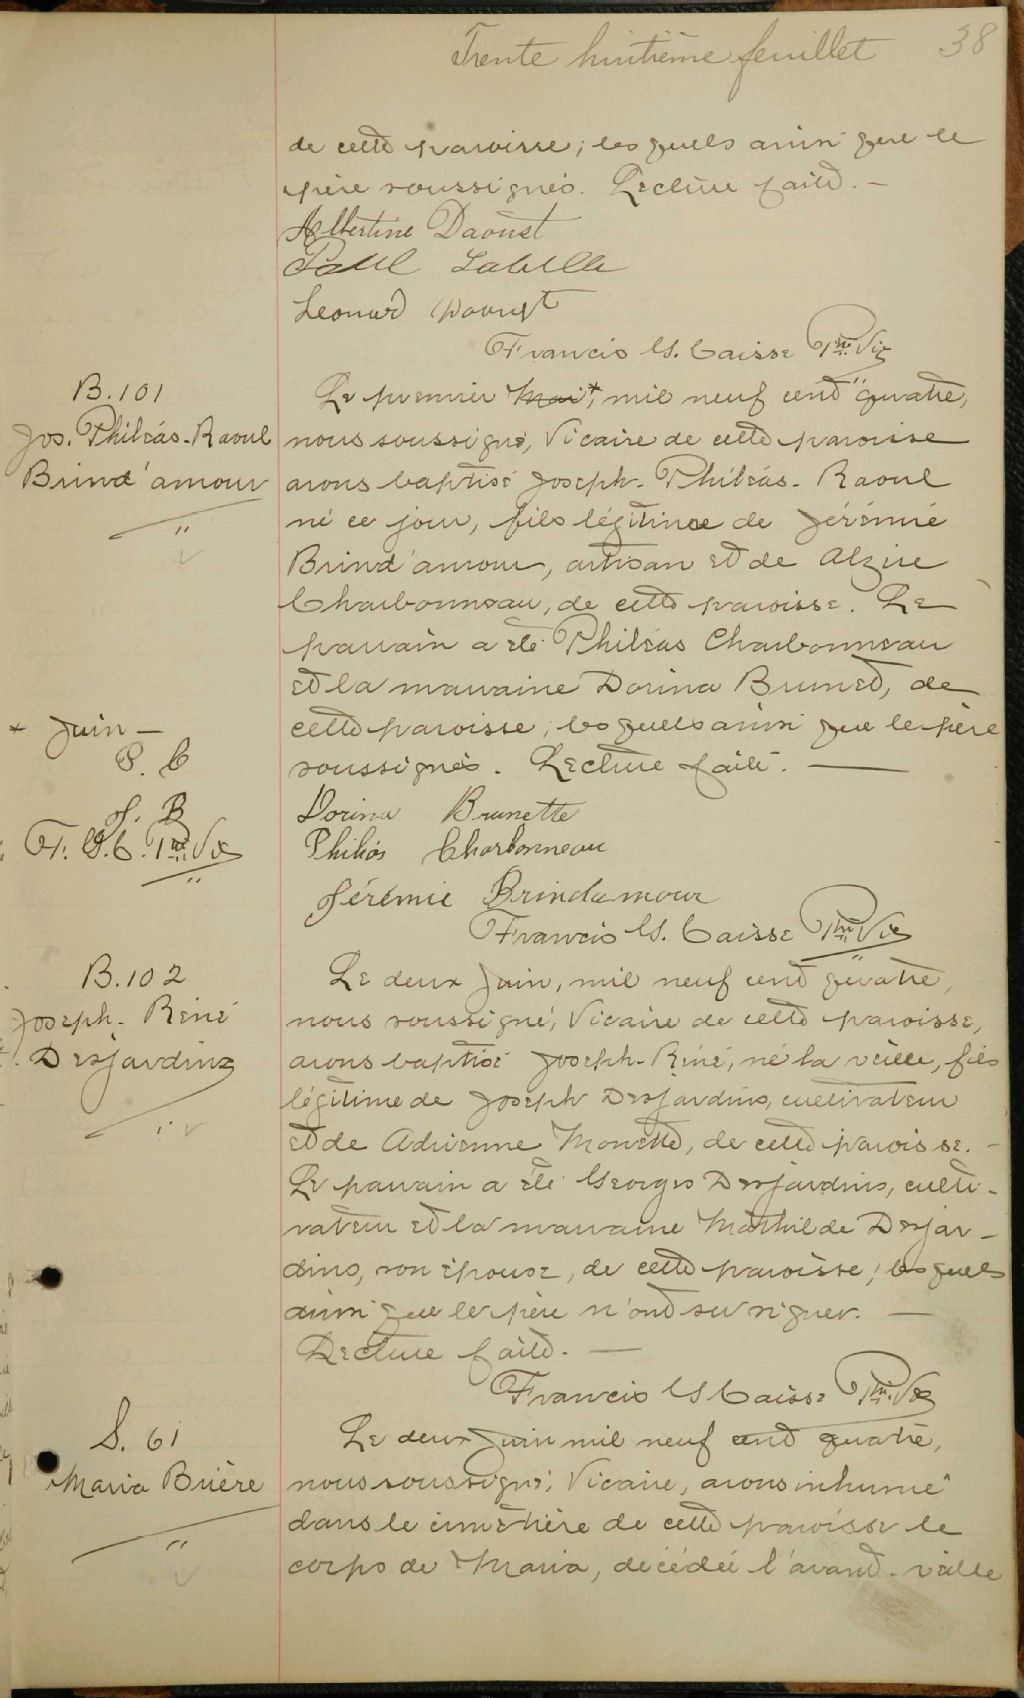 Trente huitième feuillet 38
de cette paroisse; lesquels ainsi que le
père soussignés. Lecture faite. —
Albertine Daoust
Paul Labelle
Leonard Daoust
Francis G. Caisse Ptre Vic
B.101
Jos. Philéas-Raoul
Brind'amour
Le premier Mai*, mil neuf cent quatre,
nous soussigné, Vicaire de cette paroisse
avons baptisé Joseph-Philéas-Raoul
né ce jour, fils légitime de Jérémie
Brind'amour, artisan et de Alzire
Charbonneau, de cette paroisse. Le
parrain a été Philéas Charbonneau
et la marraine Dorina Brunet, de
cette paroisse; lesquels ainsi que le père
soussignés. Lecture faite. —
* Juin —
P. C
J. B
Fr. G. C. Ptre Vic
Dorina Brunette
Philéas Charbonneau
Jérémie Brindamour
Francis G. Caisse Ptre Vic
B.102
Joseph-Réné
Desjardins
Le deux Juin, mil neuf cent quatre,
nous soussigné, Vicaire de cette paroisse,
avons baptisé Joseph-Réné, né la veille, fils
légitime de Joseph Desjardins, cultivateur
et de Adrienne Monette, de cette paroisse. -
Le parrain a été Georges Desjardins, culti-
vateur et la marraine Mathilde Desjar-
dins, son épouse, de cette paroisse; lesquels
ainsi que le père n'ont su signer. —
Lecture faite. —
Francis G Caisse Ptre. Vic
S. 61
Maria Brière
Le deux Juin mil neuf cent quatre,
nous soussigné, Vicaire, avons inhumé
dans le cimetière de cette paroisse le
corps de Maria, décédée l'avant-veille